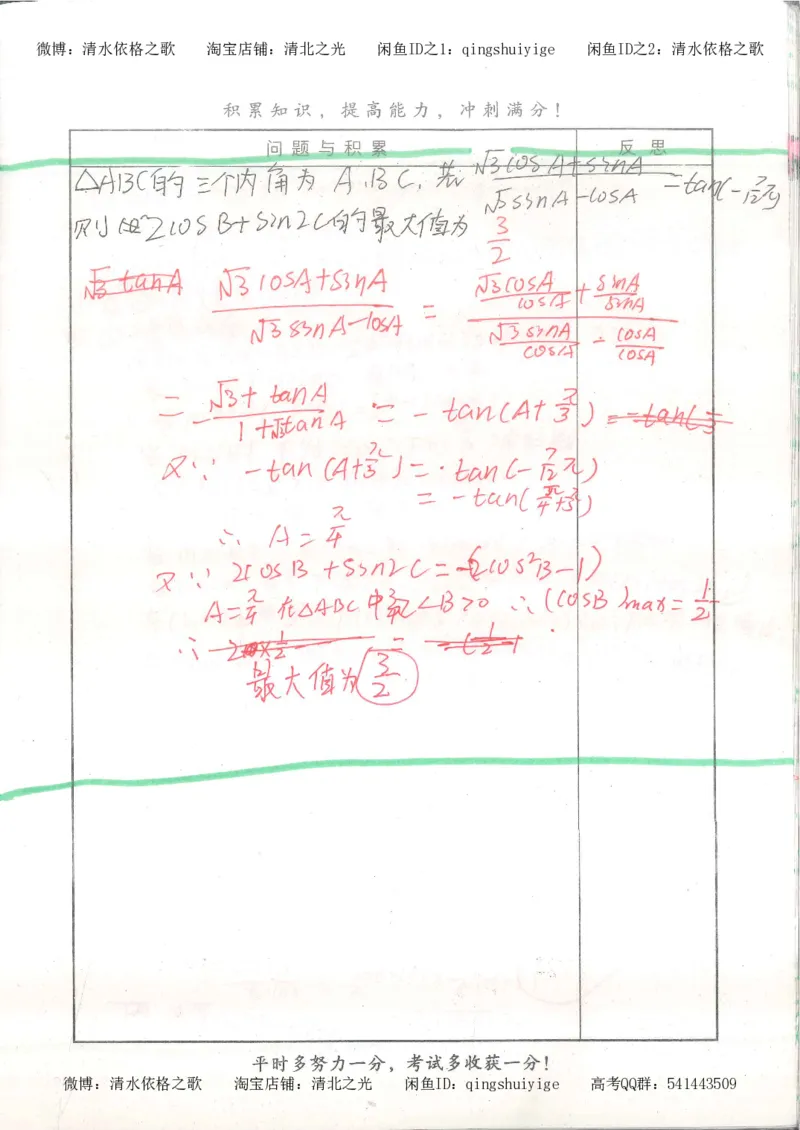 微博：清水依格之歌 淘宝店铺：清北之光 闲鱼ID之1：qingshuiyige 闲鱼ID之2：清水依格之歌
积累知识，提高能力，冲刺满分！
问题与积累 反思
△ABC的三个内角为A.B.C, (√3cosA+sinA)/(√3sinA-cosA) = tan(-7/12π)
则 2cosB+sin2C的最大值为 3/2
√3tanA (√3cosA+sinA)/(√3sinA-cosA) = (√3cosA/cosA + sinA/sinA)/(√3sinA/cosA - cosA/cosA)
= -(√3+tanA)/(1+√3tanA) = -tan(A+π/3)
又∵ -tan(A+π/3) = tan(-7/12π)
= -tan(π/4+π/3)
∴ A=π/4
又∵ 2cosB+sin2C=-(2cos²B-1)
A=π/4 在△ABC中 ∠B>0 ∴(cosB)max=1/2
∴
最大值为 3/2
平时多努力一分，考试多收获一分！
微博：清水依格之歌 淘宝店铺：清北之光 闲鱼ID：qingshuiyige 高考QQ群：541443509